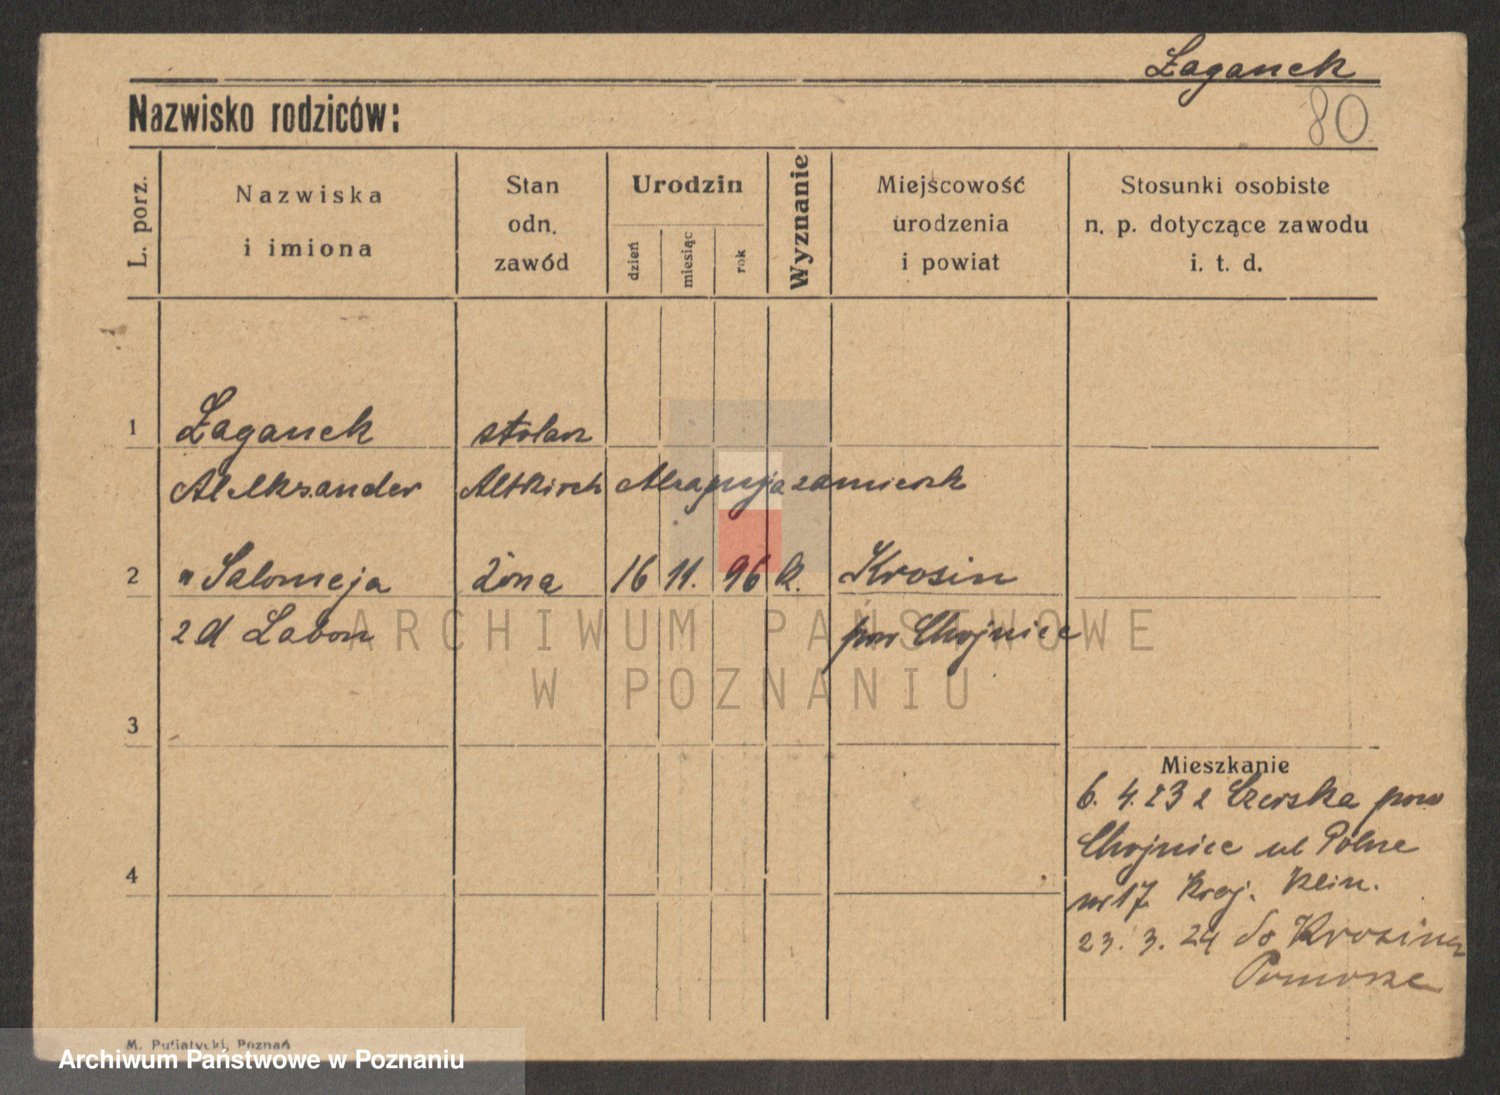 Łaganek
80
Nazwisko rodziców:
L. porz.
Nazwiska
i imiona
Stan
odn.
zawód
Urodzin
dzień
miesiąc
rok
Wyznanie
Miejscowość
urodzenia
i powiat
Stosunki osobiste
n. p. dotyczące zawodu
i. t. d.
1 Łaganek stolarz
Aleksander Altkirch zamieszk
2 " Salomeja żona 16 11. 96 k. Krosin
zd Labon pow Chojnice
3
4
Mieszkanie
6. 4. 23 z Czerska pow
Chojnice ul Polne
nr 17
23. 3. 24 do Krosina
Pomorze
M. Putiatycki, Poznań
ARCHIWUM PAŃSTWOWE
W POZNANIU
Archiwum Państwowe w Poznaniu